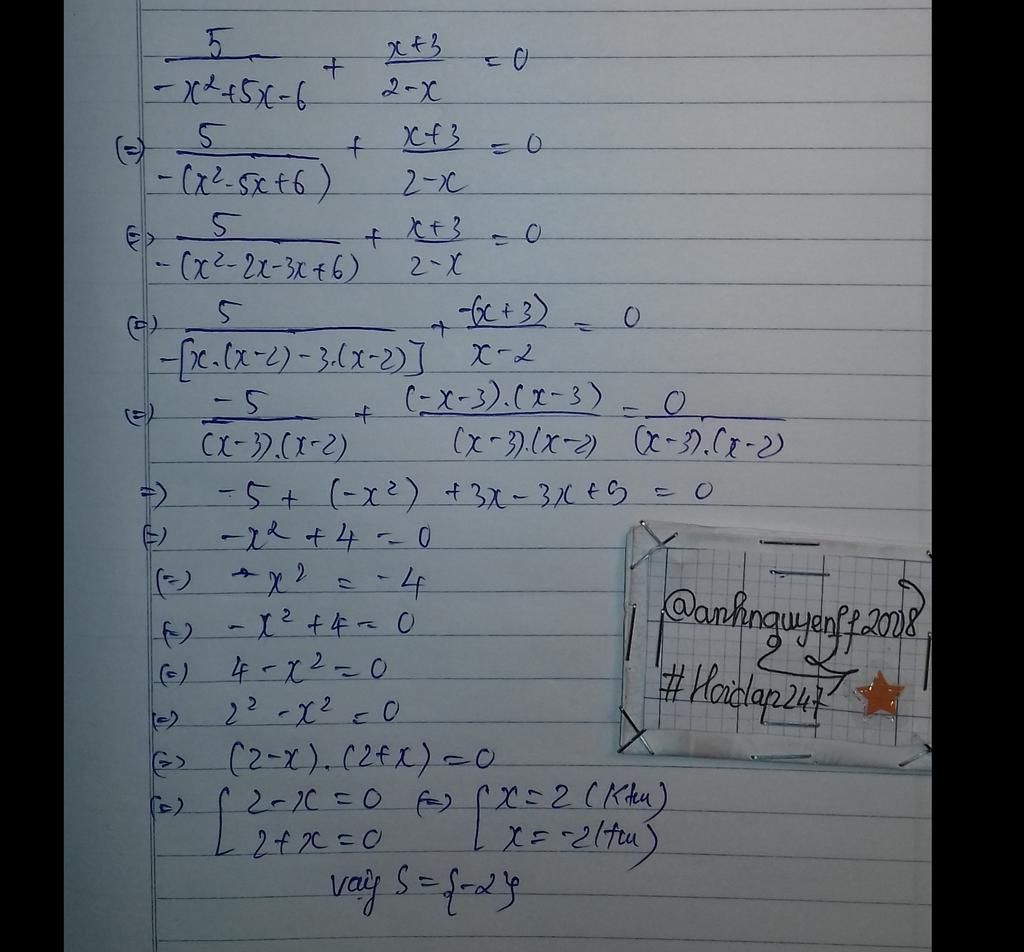 5/(-x²+5x-6) + (x+3)/(2-x) = 0
(=) 5/(-(x²-5x+6)) + (x+3)/(2-x) = 0
(=) 5/(-(x²-2x-3x+6)) + (x+3)/(2-x) = 0
(=) 5/(-[x.(x-2)-3.(x-2)]) + (-(x+3))/(x-2) = 0
(=) -5/((x-3).(x-2)) + ((-x-3).(x-3))/((x-3).(x-2)) = 0/((x-3).(x-2))
=) -5 + (-x²) + 3x - 3x + 9 = 0
(=) -x² + 4 = 0
(=) -x² = -4
(=) -x² + 4 = 0
(=) 4 - x² = 0
(=) 2² - x² = 0
(=) (2-x).(2+x) = 0
(=) [ 2-x = 0 (=) [ x = 2 (Ktm)
2+x = 0 x = -2 (tm)
vậy S = {-2}
@anhnguyenff2008
#Hoidap247